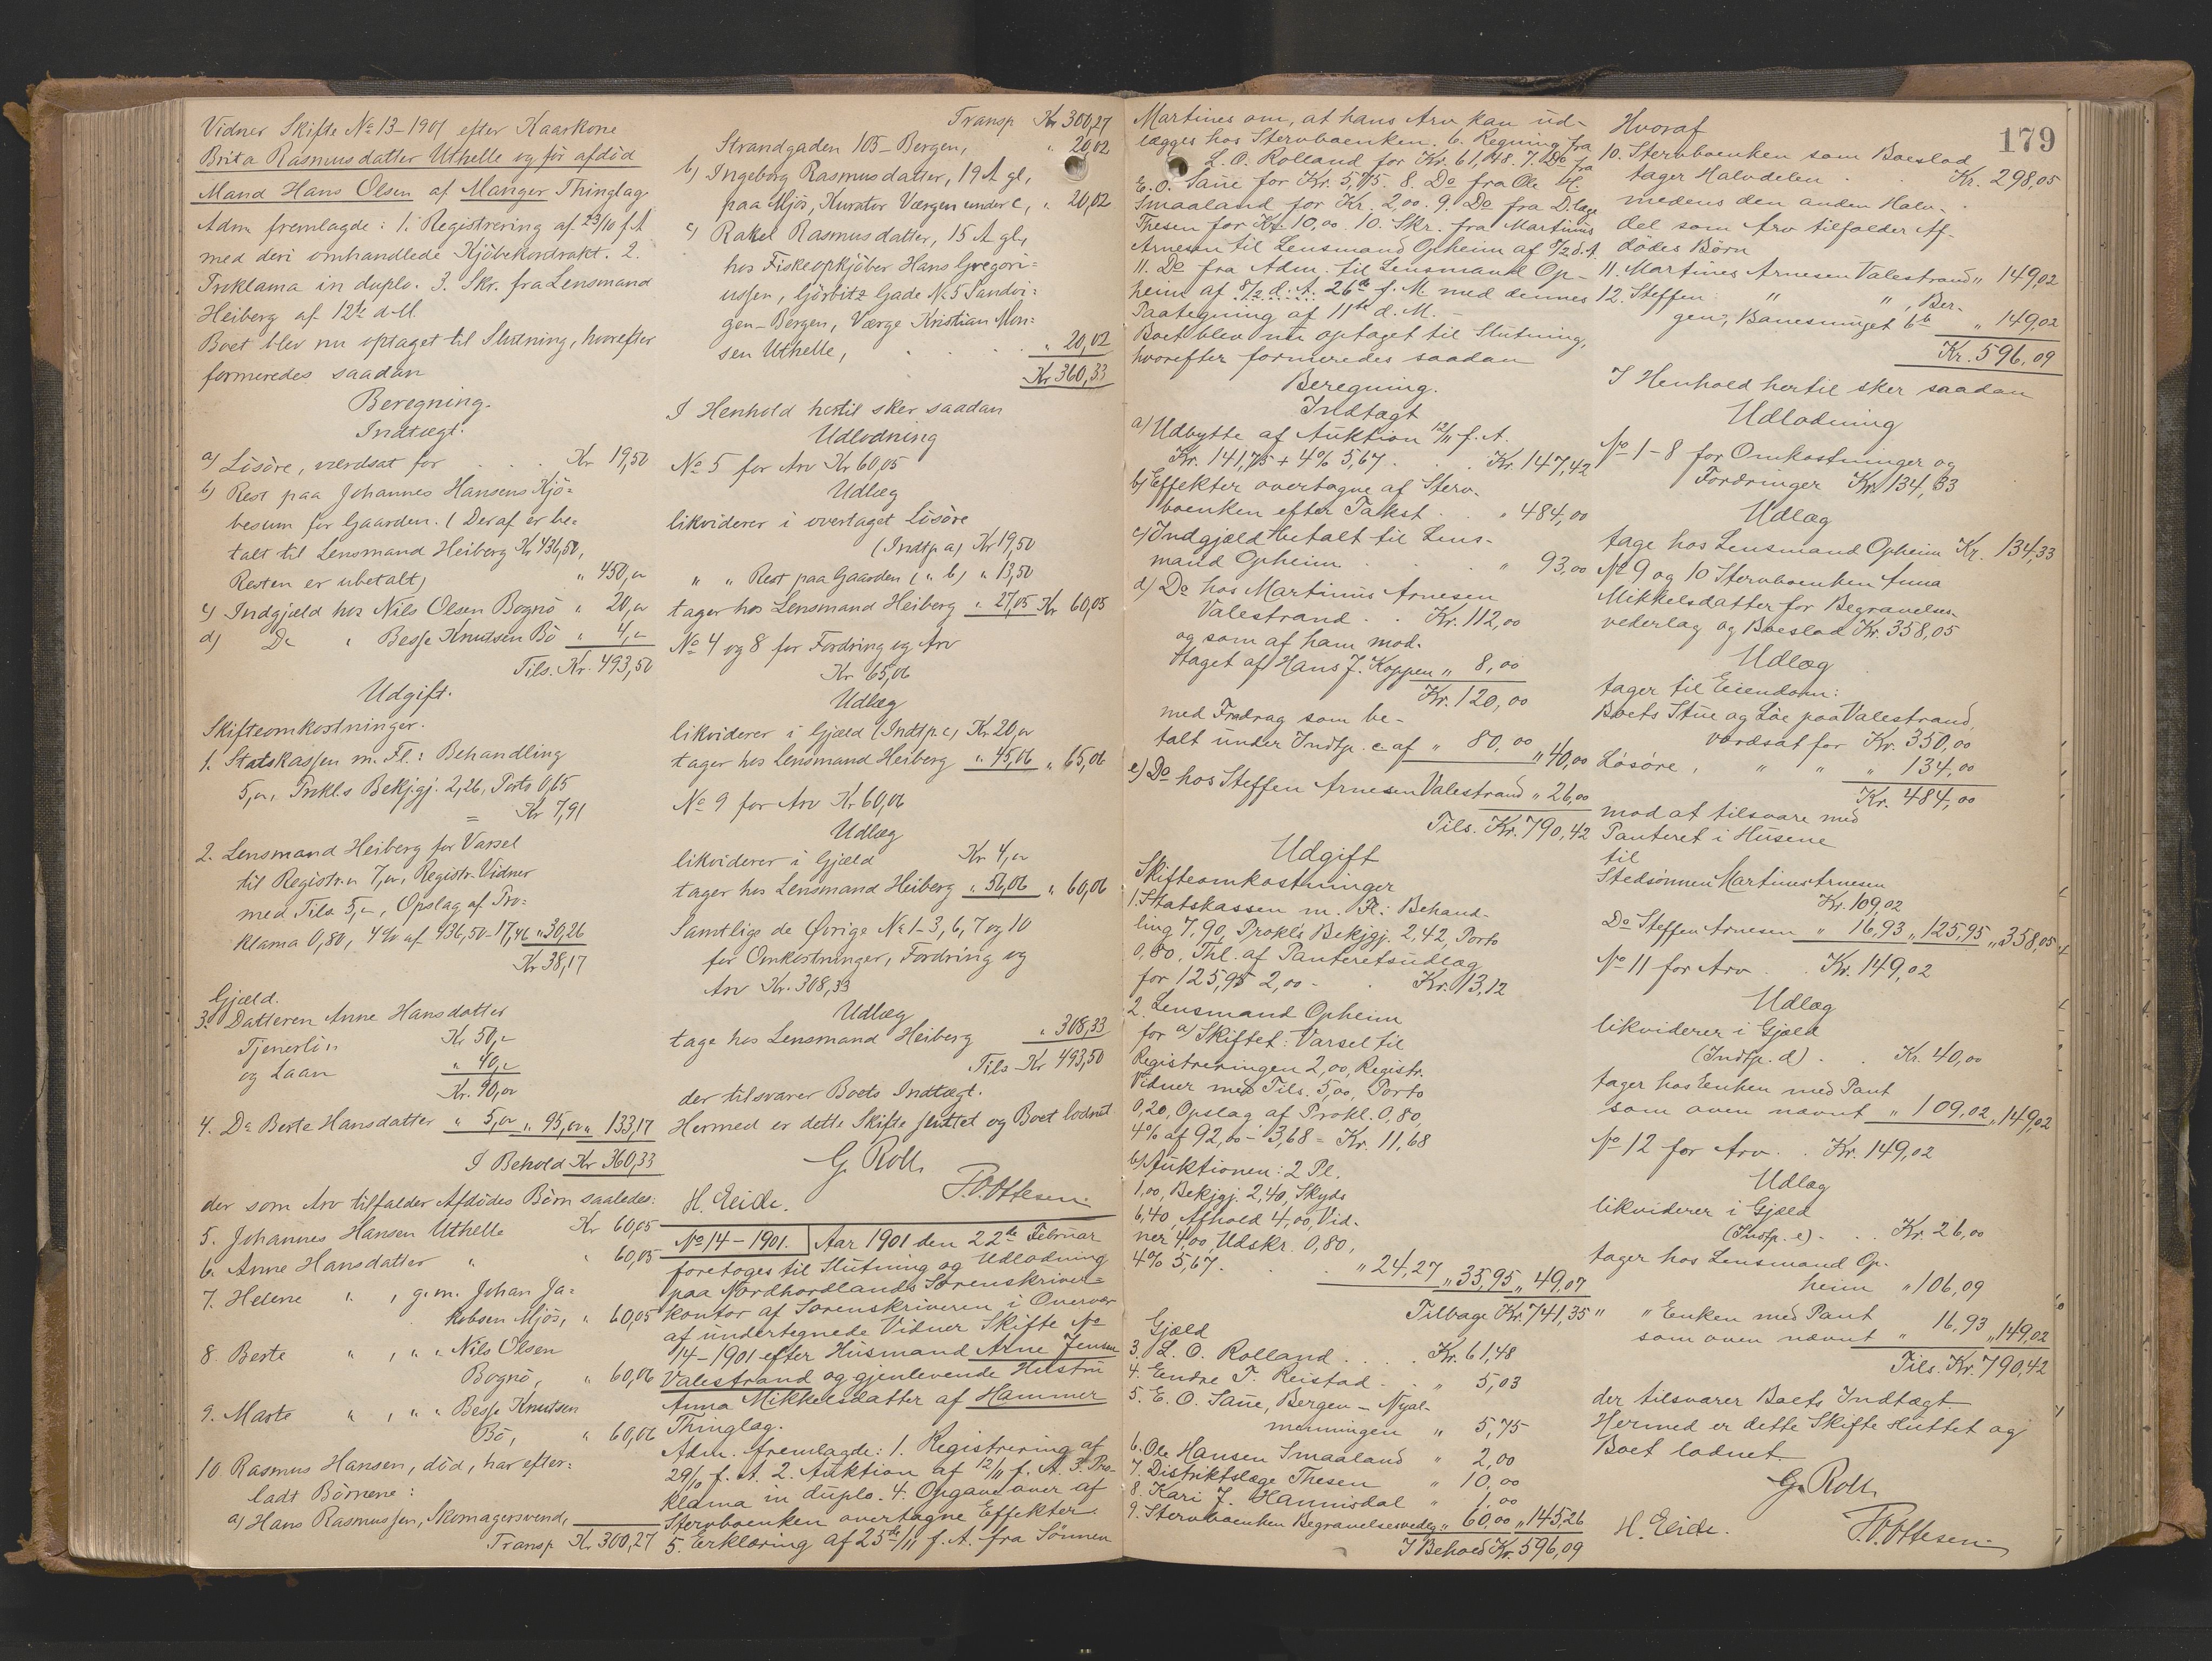 Vidner Skifte No 13-1901 efter Kaarkone
Brita Rasmusdatter Uthelle og før afdød
Mand Hans Olsen af Manger Thinglag
Adm. fremlagde: 1. Registrering af 23/10 f.A.
med deri omhandlede Kjöbekontrakt. 2.
Proklama in duplo. 3. Skr. fra Lensmand
Heiberg af 12te d.M.
Boet blev nu optaget til Slutning, hvorefter
formeredes saadan
Beregning.
Indtægt.
a) Lösöre, værdsat for . . . Kr 19,50
b) Rest paa Johannes Hansens Kjö=
besum for Gaarden. (Deraf er be=
talt til Lensmand Heiberg Kr 436,50,
Resten er ubetalt) " 450,00
c) Indgjæld hos Nils Olsen Bognö " 20,00
d) Do " Besse Knutsen Bö " 4,00
Tils. Kr. 493,50
Udgift.
Skifteomkostninger.
1. Statskassen m. Fl.: Behandling
5,00, Prokl.s Bekjgj. 2,26, Porto 0,65
= Kr 7,91
2. Lensmand Heiberg for Varsel
til Registr.n 7,00, Registr. Vidner
med Tils. 5,00, Opslag af Pro=
klama 0,80, 4% af 436,50 - 17,46 " 30,26
Kr 38,17
Gjæld.
3. Datteren Anne Hansdatter
Tjenerlön Kr 50,00
og Laan " 40,00
Kr. 90,00
4. Do Berte Hansdatter " 5,00 " 95,00 " 133,17
I Behold Kr 360,33
der som Arv tilfalder Afdödes Börn saaledes:
5. Johannes Hansen Uthelle Kr 60,05
6. Anne Hansdatter " " 60,05
7. Helene " , g. m. Johan Ja=
kobsen Mjös, " 60,05
8. Berte " , " " Nils Olsen
Bognö, " 60,06
9. Marte " , " " Besse Knutsen
Bö, " 60,06
10 Rasmus Hansen, död, har efter=
ladt Börnene:
a) Hans Rasmussen, Skomagersvend,
Transp Kr 300,27
Transp Kr 300,27
Strandgaden 105 - Bergen, " 20,02
b) Ingeborg Rasmusdatter, 19 A gl,
paa Mjös, Kurator Værgen under c, " 20,02
c) Rakel Rasmusdatter, 15 A gl,
hos Fiskeopkjöber Hans Gregori=
ussen, Görbitz Gade No 5 Sandvi=
gen - Bergen, Værge Kristian Mon=
sen Uthelle, . . . " 20,02
Kr 360,33
I Henhold hertil sker saadan
Udlodning
No 5 for Arv Kr 60,05
Udlæg
likviderer i overtaget Lösöre
(Indtp a) Kr 19,50
" " Rest paa Gaarden ( " b) " 13,50
tager hos Lensmand Heiberg " 27,05 Kr 60,05
No 4 og 8 for Fordring og Arv
Kr 65,06
Udlæg
likviderer i Gjæld (Indtp c) Kr 20,00
tager hos Lensmand Heiberg " 45,06 " 65,06
No 9 for Arv Kr 60,06
Udlæg
likviderer i Gjæld Kr 4,00
tager hos Lensmand Heiberg " 56,06 " 60,06
Samtlige de Övrige No 1-3, 6, 7 og 10
for Omkostninger, Fordring og
Arv Kr. 308,33
Udlæg
tage hos Lensmand Heiberg " 308,33
Tils Kr 493,50
der tilsvarer Boets Indtægt.
Hermed er dette Skifte sluttet og Boet lodnet
G. Roll.
H. Eide. P.O. Ottesen.
No 14 - 1901. Aar 1901 den 22de Februar
foretoges til Slutning og Udlodning
paa Nordhordlands Sorenskriver=
kontor af Sorenskriveren i Overvær
af undertegnede Vidner Skifte No
14-1901 efter Husmand Arne Jensen
Valestrand og gjenlevende Hustru
Anna Mikkelsdatter af Hammer
Thinglag.
Adm. fremlagde: 1. Registrering af
29/10 f. A. 2. Auktion af 12/11 f. A. 3. Pro-
klama in duplo. 4. Opgave over af
Stervboenken overtagne Effekter.
5. Erklæring af 25de/11 f. A. fra Sönnen
179
Martines om, at hans Arv kan ud-
lægges hos Stervboenken. 6. Regning fra
L. O. Rolland for Kr. 61,48. 7. Do fra
E. O. Saue for Kr. 5,75. 8. Do fra Ole H.
Smaaland for Kr. 2,00. 9. Do fra D.læge
Thesen for Kr. 10,00. 10. Skr. fra Martinus
Arnesen til Lensmand Opheim af 9/2 d. A.
11. Do fra Adm. til Lensmand Op-
heim af 8/2 d. A. 26de f. M. med dennes
Paategning af 11te d. M. -
Boet blev nu optaget til Slutning,
hvorefter formeredes saadan
Beregning.
Indtægt
a) Udbytte af Auktion 12/11 f. A.
Kr. 141,75 + 4% 5,67 . . Kr. 147,42
b) Effekter overtagne af Sterv-
boenken efter Takst . . " 484,00
c) Indgjæld betalt til Lens-
mand Opheim . . . " 93,00
d) Do hos Martinus Arnesen
Valestrand . . Kr. 112,00
og som af ham mod-
taget af Hans J. Koppen " 8,00
Kr. 120,00
med Fradrag som be-
talt under Indtp. c af " 80,00 " 40,00
e) Do hos Steffen Arnesen Valestrand " 26,00
Tils. Kr. 790,42
Udgift
Skifteomkostninger
1. Statskassen m. Fl.: Behand-
ling 7,90, Prokl.s Bekjgj. 2,42, Porto
0,80, Thl. af Panteretsudlæg
for 125,95 2,00 - . Kr. 13,12
2. Lensmand Opheim
for a) Skiftet: Varsel til
Registreringen 2,00, Registr.
Vidner med Tils. 5,00, Porto
0,20, Opslag af Prokl. 0,80,
4% af 92,00 - 3,68 = Kr. 11,68
b) Auktionen: 2 Pl.
1,00, Bekjgj. 2,40, Skyds
6,40, Afhold 4,00, Vid-
ner 4,00, Udskr. 0,80,
4% 5,67. . . " 24,27 " 35,95 " 49,07
Tilbage Kr. 741,35
Gjæld
3. L. O. Rolland . . . Kr. 61,48
4. Endre T. Reistad . . " 5,03
5. E. O. Saue, Bergen - Nyal-
menningen " 5,75
6. Ole Hansen Smaaland " 2,00
7. Distriktslæge Thesen " 10,00
8. Kari J. Hannisdal " 1,00
9. Stervboenken Begravelsesvedlg. " 60,00 " 145,26
I Behold Kr. 596,09
Hvoraf
10. Stervboenken som Boeslod
tager Halvdelen . . Kr. 298,05
medens den anden Halv-
del som Arv tilfalder Af-
dödes Börn
11. Martines Arnesen Valestrand " 149,02
12. Steffen " " , Ber-
gen, Banesmuget 6b " 149,02
Kr. 596,09
I Henhold hertil sker saadan
Udlodning
No 1-8 for Omkostninger og
Fordringer Kr. 134,33
Udlæg
tage hos Lensmand Opheim Kr. 134,33
No 9 og 10 Stervboenken Anna
Mikkelsdatter for Begravelses-
vederlag og Boeslod Kr. 358,05
Udlæg
tager til Eiendom:
Boets Stue og Löe paa Valestrand,
værdsat for Kr. 350,00
Lösöre, " " " 134,00
Kr. 484,00
mod at tilsvare med
Panteret i Husene
til
Stedsönnen Martines Arnesen
Kr. 109,02
Do Steffen Arnesen " 16,93 " 125,95 " 358,05
No 11 for Arv . . Kr. 149,02
Udlæg
likviderer i Gjæld
(Indtp. d) . . Kr. 40,00
tager hos Enken med Pant
som oven nævnt " 109,02 " 149,02
No 12 for Arv . . Kr. 149,02
Udlæg
likviderer i Gjæld
(Indtp. e) . . . Kr. 26,00
tager hos Lensmand Op-
heim " 106,09
" " Enken med Pant
som oven nævnt " 16,93 " 149,02
Tils. Kr. 790,42
der tilsvarer Boets Indtægt.
Hermed er dette Skifte sluttet og
Boet lodnet.
G. Roll.
H. Eide. P.O. Ottesen.